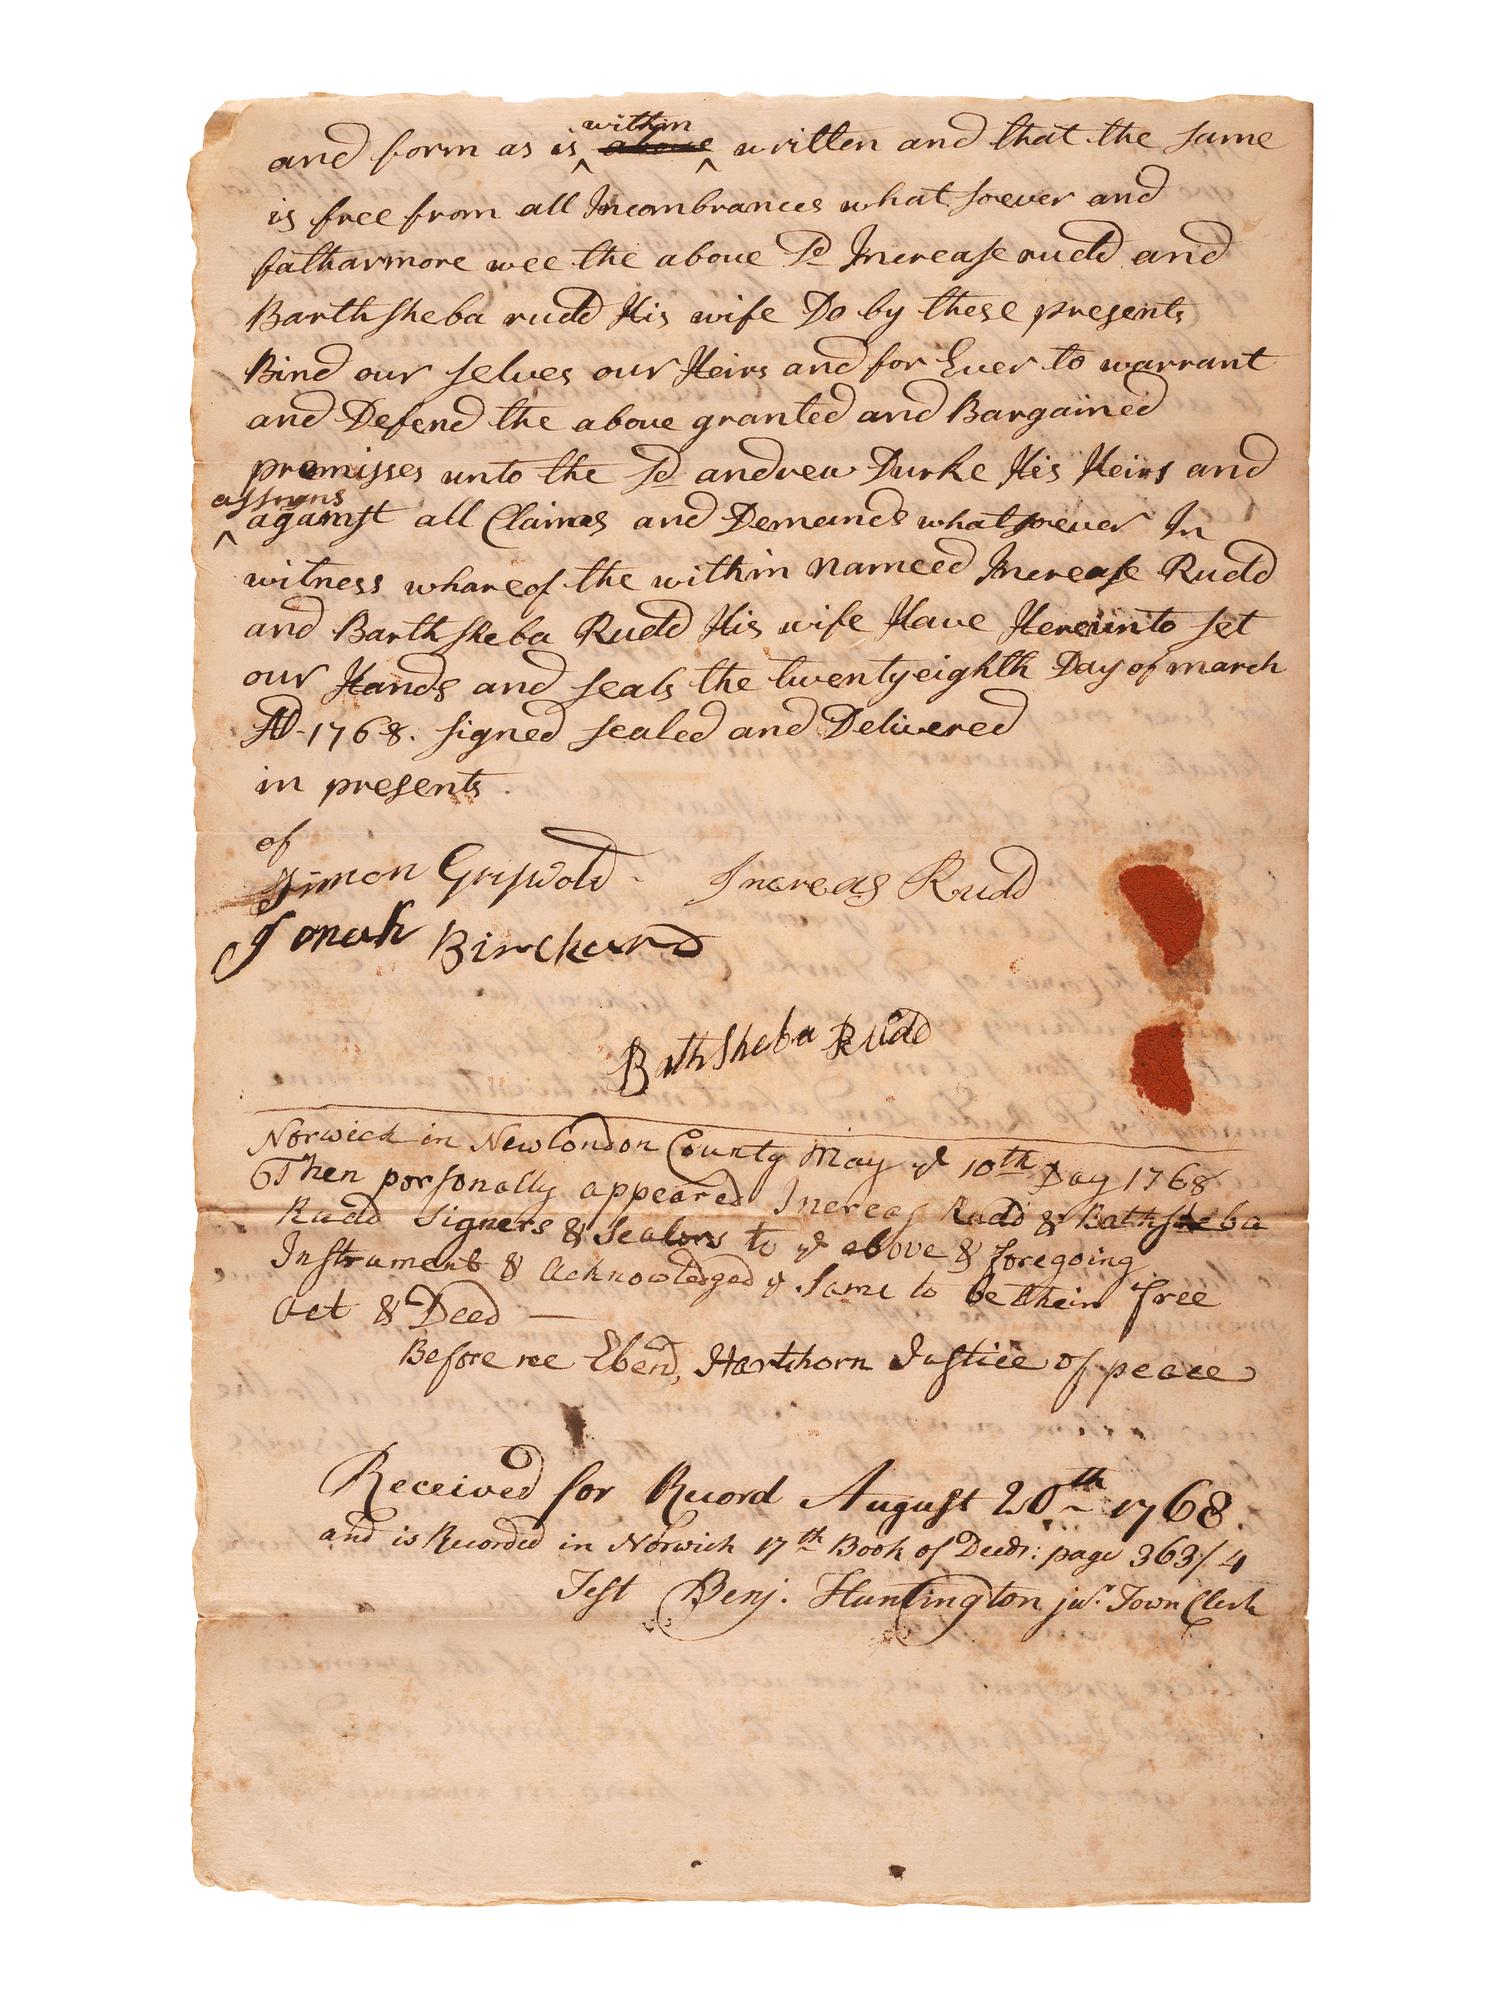 and form as is ^within above^ written and that the same
is free from all Incombrances what soever and
fatharmore wee the above Sd Increase rudd and
Barthsheba rudd His wife Do by these presents
Bind our selves our Heirs and for Ever to warrant
and Defend the above granted and Bargained
premisses unto the Sd andrew Durke His Heirs and
^assigns against all Claimes and Demands whatsoever In
witness whareof the within nameed Increase Rudd
and Barthsheba Rudd His wife Have Hereunto set
our Hands and seals the twentyeighth Day of march
AD-1768. signed sealed and Delivered
in presents.
of
Simon Griswold - Increas Rudd
Jonah Birchard
Bathsheba Rudd
Norwich in New London County May ye 10th Day 1768
Then porsonally appeared Increas Rudd & Bathsheba
Rudd Signers & Sealors to ye above & foregoing
Instrument & acknowledged ye Same to be their free
act & Deed —
Before me Ebenr, Hartshorn Justice of peace
Received for Record August 20th 1768.
and is Recorded in Norwich 17th Book of Deeds: page 363/4
Test Benj. Huntington junr Town Clerk